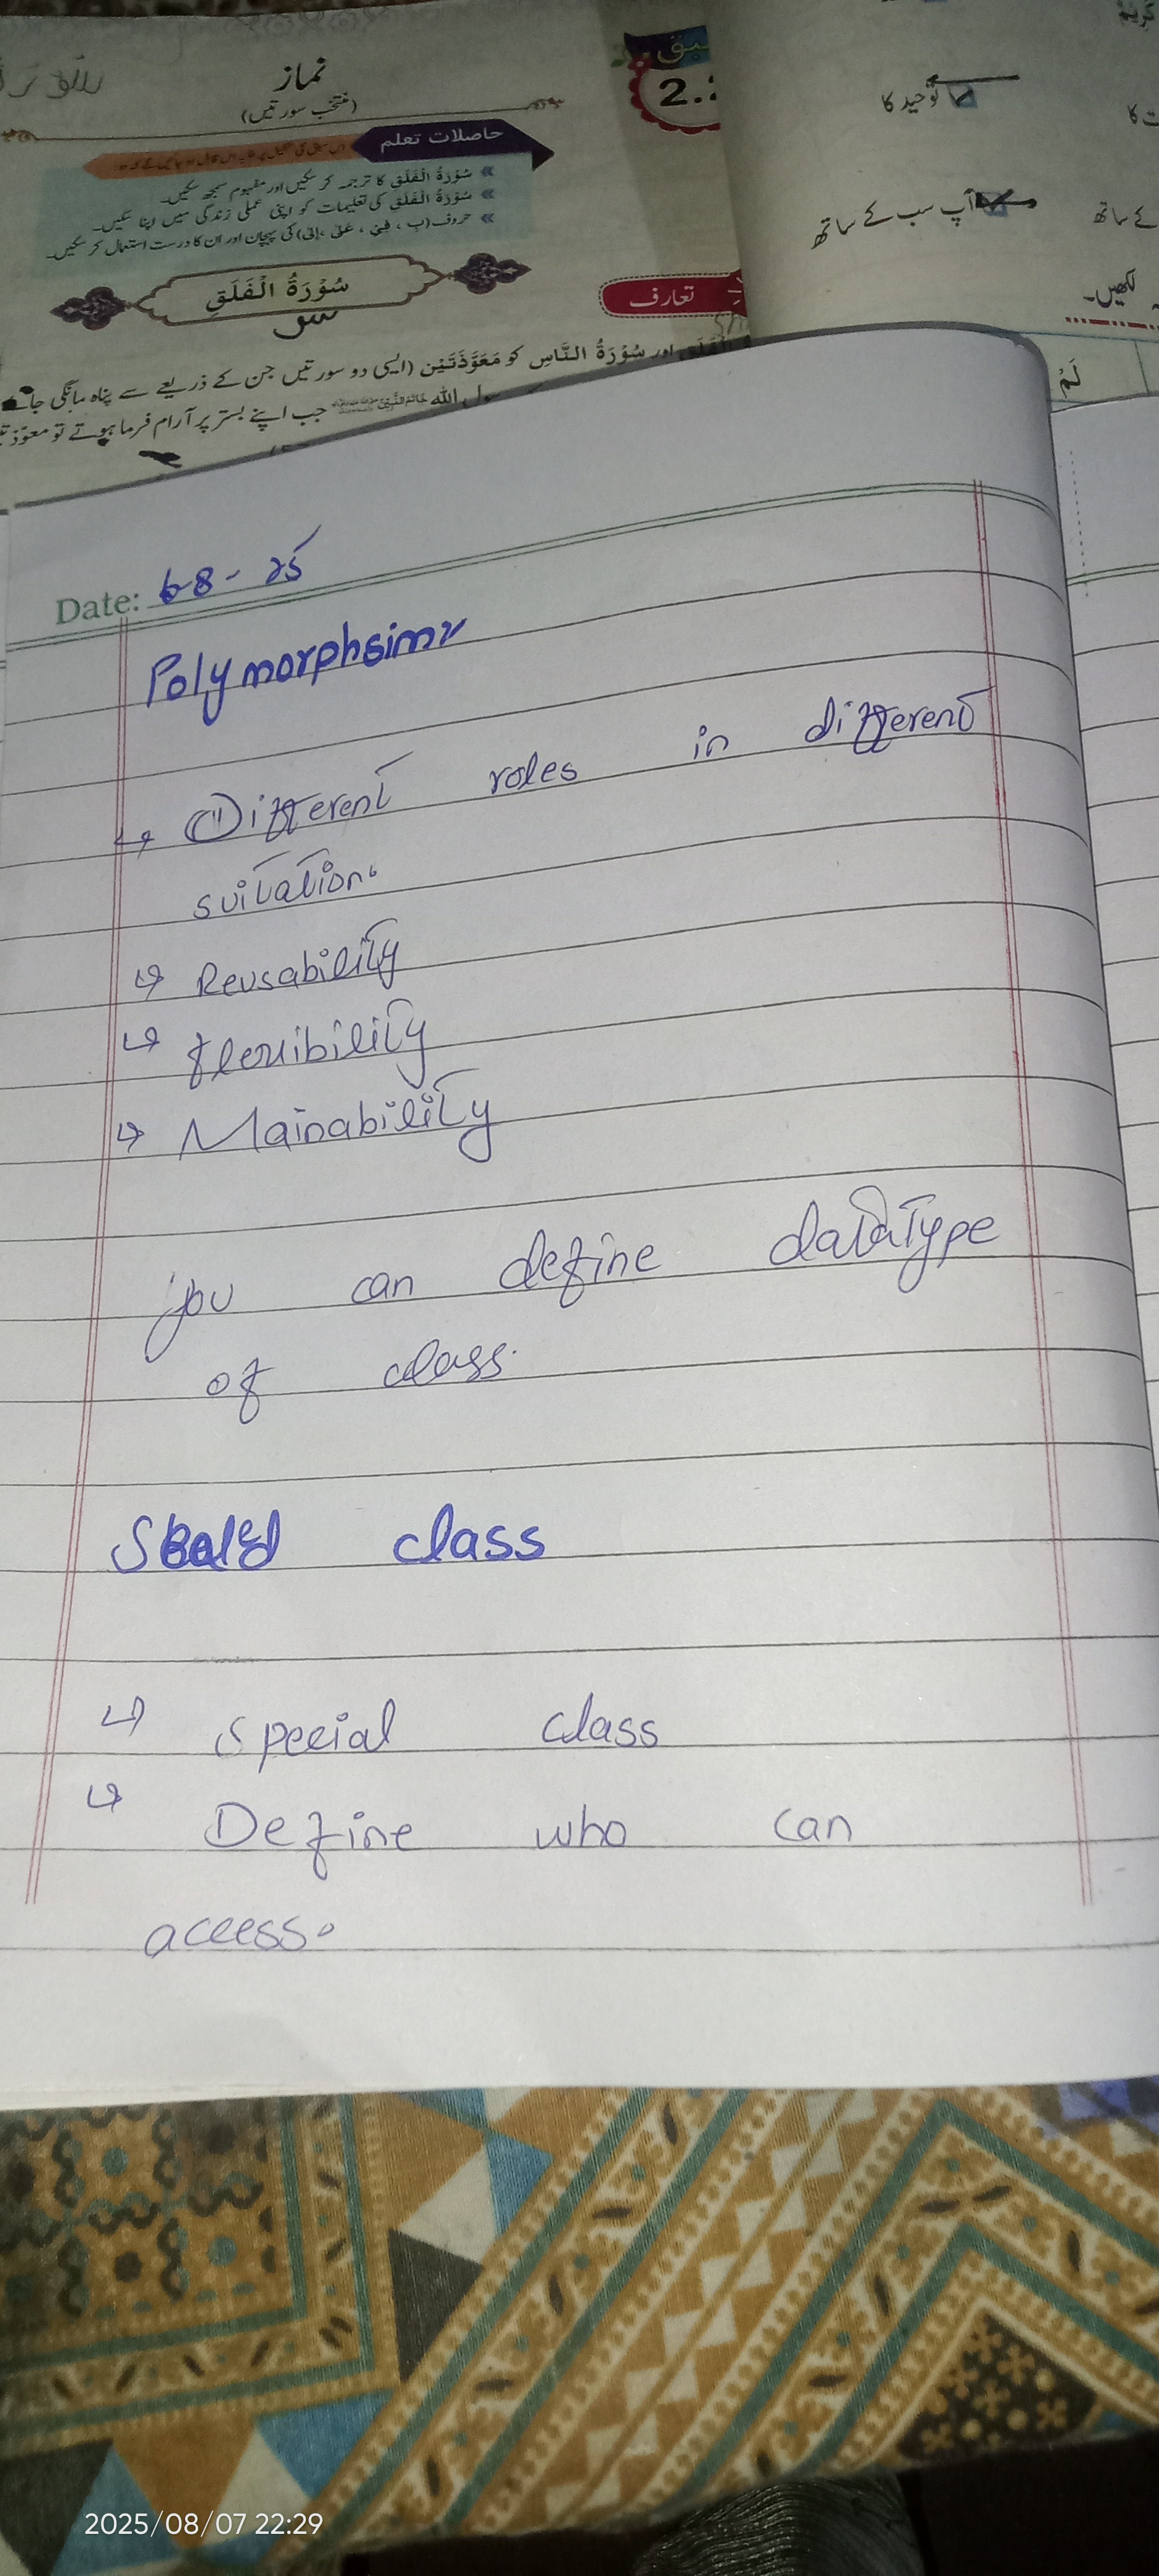 نماز
(منتخب سورتیں)
سبق
حاصلات تعلم
سُوْرَةُ الْفَلَقِ کا ترجمہ کر سکیں اور مفہوم سمجھ سکیں۔
سُوْرَةُ الْفَلَقِ کی تعلیمات کو اپنی عملی زندگی میں اپنا سکیں۔
حروف (ب ، فِیْ ، عَلٰی ، اِلٰی) کی پہچان اور ان کا درست استعمال کر سکیں۔
سُوْرَةُ الْفَلَقِ
تعارف
اور سُوْرَةُ النَّاسِ کو مَعَوَّذَتَیْن (ایسی دو سورتیں جن کے ذریعے سے پناہ مانگی
جب اپنے بستر پر آرام فرما ہوتے تو
توحید کا
آپ سب کے ساتھ
کے ساتھ
لکھیں۔
لَمْ
Date: 6-8-25
Polymorphsim
↳ Different roles in different
suitation.
↳ Reusability
↳ flexibility
↳ Mainability
you can define datatype
of class.
class
↳ special class
↳ Define who can
access.
2025/08/07 22:29